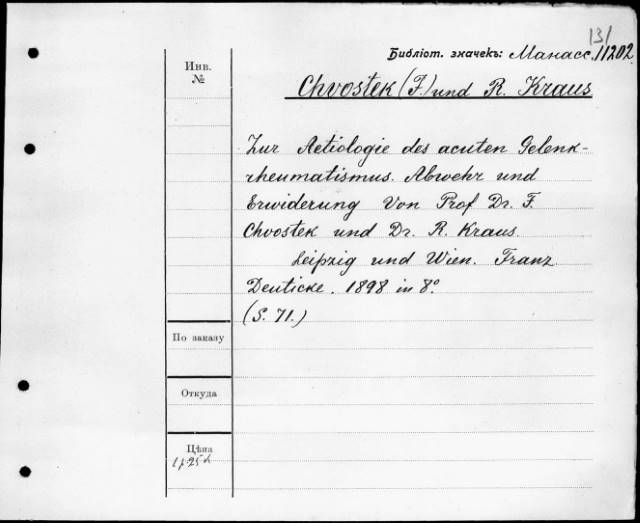 131
Библіот. значекъ: Манасс. 11202
Инв.
№
Chvostek (F.) und R. Kraus
Zur Aetiologie des acuten Gelenk-
rheumatismus. Abwehr und
Erwiderung Von Prof Dr. F.
Chvostek und Dr. R. Kraus.
Leipzig und Wien. Franz
Deuticke. 1898 in 8º
(S. 71.)
По заказу
Откуда
Цѣна